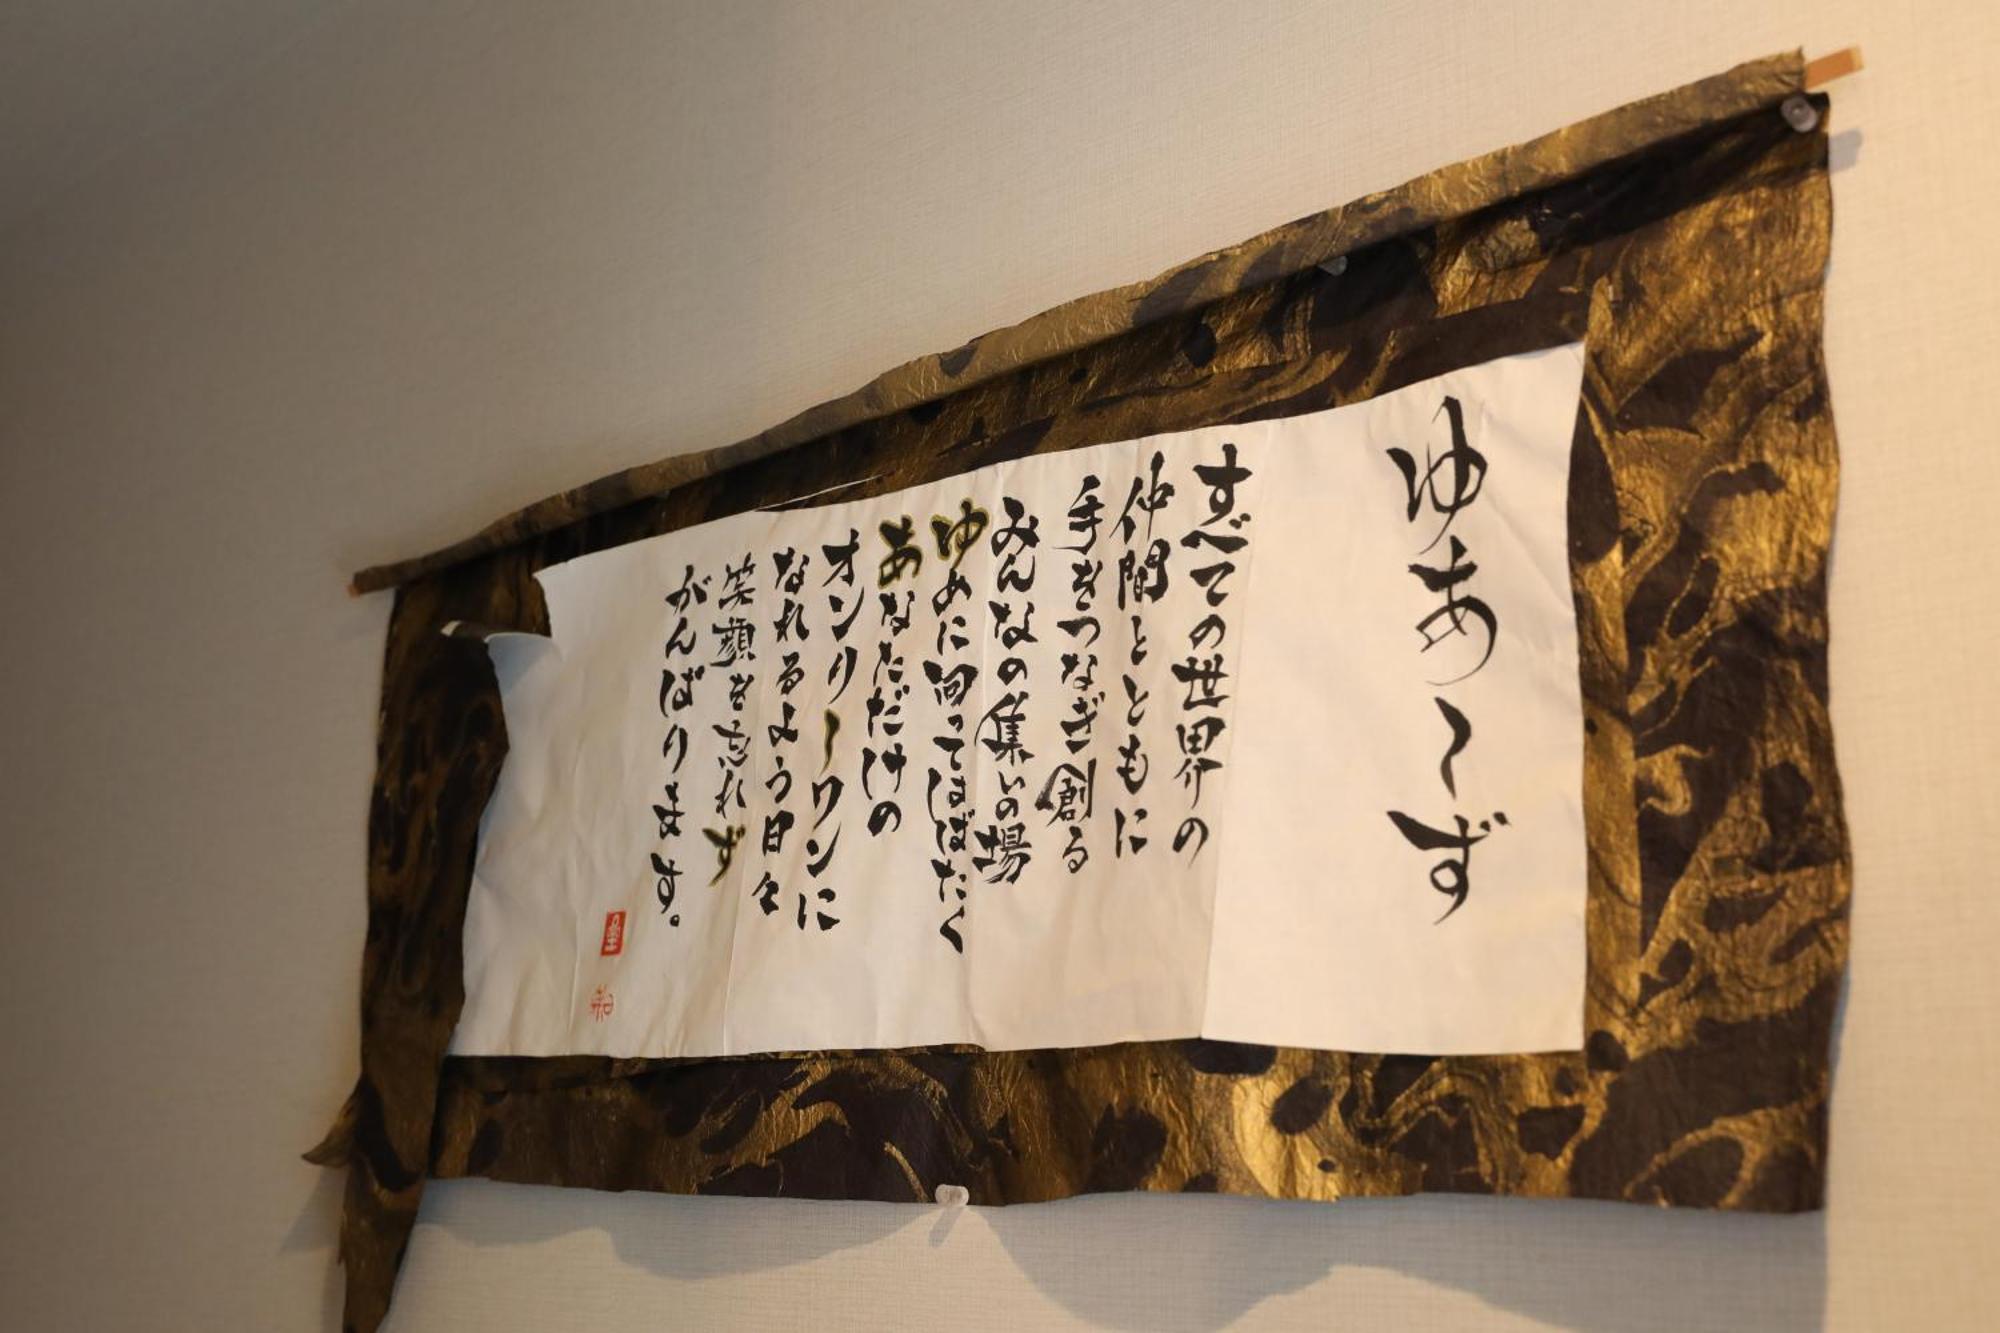 ゆあーず
すべての世界の
仲間とともに
手をつなぎ創る
みんなの集いの場
ゆめに向ってはばたく
あなただけの
オンリーワンに
なれるよう日々
笑顔を忘れず
がんばります。